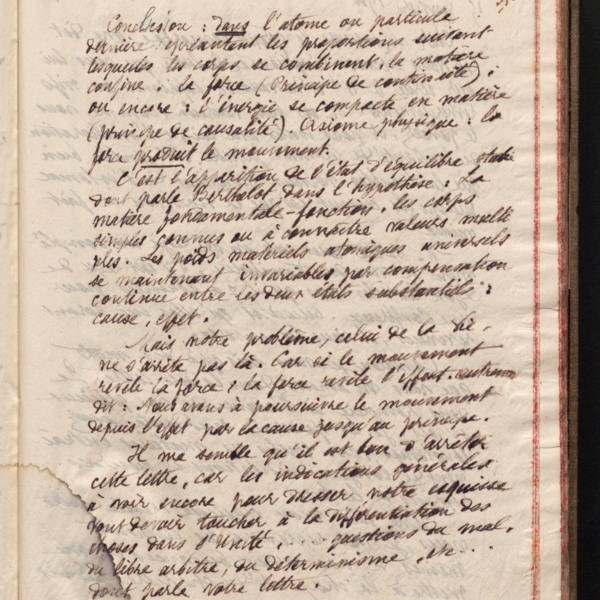 Conclusion : dans l'atome ou particule
dernière représentant les proportions suivant
lesquelles les corps se combinent, la matière
confine à la force (Principe de continuité) ;
ou encore : l'énergie se compacte en matière
(principe de causalité). Axiome physique : la
force produit le mouvement.
C'est l'apparition de l'état d'équilibre stable
dont parle Berthelot dans l'hypothèse : La
matière fondamentale-fonction. les corps
simples connus ou à connaître valeurs multi
ples. Les poids matériels atomiques universels
se maintenant invariables par compensation
continue entre les deux états substantiels :
cause, effet.
Mais notre problème, celui de la vie,
ne s'arrête pas là. Car si le mouvement
révèle la force, la force révèle l'effort. autrement
dit : Nous avons à poursuivre le mouvement
depuis l'effet par la cause jusqu'au principe.
Il me semble qu'il est bon d'arrêter
cette lettre, car les indications générales
à voir encore pour dresser notre esquisse
vont devoir toucher à la différentiation des
choses dans l'Unité, ... questions du mal,
du libre arbitre, du déterminisme, etc...
dont parle votre lettre.